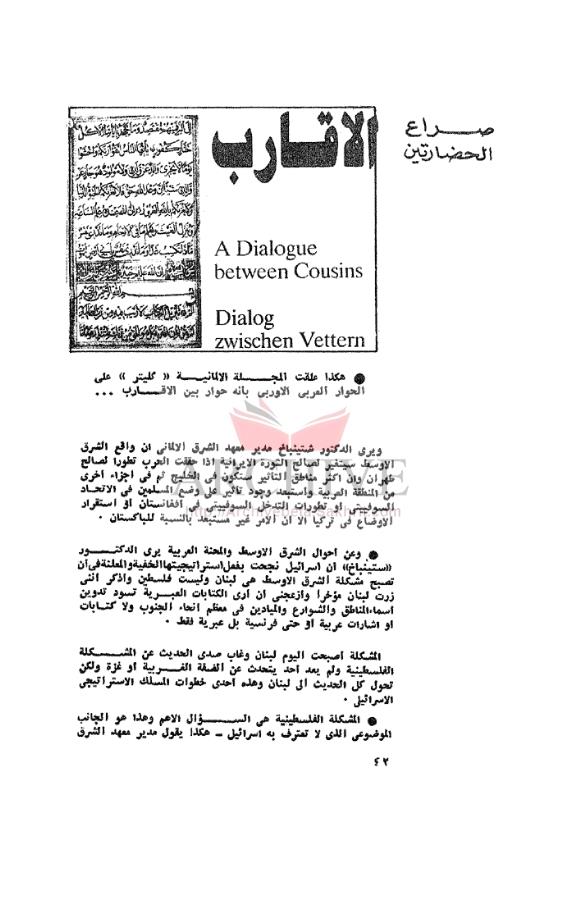 صراع
الحضارتين
الاقارب
A Dialogue
between Cousins
Dialog
zwischen Vettern
● هكذا علقت المجلة الالمانية « كليتر » على
الحوار العربى الاوربى بانه حوار بين الاقارب ...
ARCHIVE
ويرى الدكتور شتينباخ مدير معهد الشرق الالمانى ان واقع الشرق
الاوسط سيتغير لصالح الثورة الايرانية اذا حققت الحرب تطورا لصالح
طهران وان اكثر مناطق التاثير ستكون فى الخليج ثم فى اجزاء اخرى
من المنطقة العربية واستبعد وجود تأثير على وضع المسلمين فى الاتحاد
السوفييتى أو تطورات التدخل السوفييتى فى أفغانستان أو استقرار
الاوضاع فى تركيا الا ان الامر غير مستبعد بالنسبة للباكستان .
● وعن احوال الشرق الاوسط والمحنة العربية يرى الدكتور
«ستينباخ» أن اسرائيل نجحت بفعل استراتيجيتها الخفية والمعلنة فى أن
تصبح مشكلة الشرق الاوسط هى لبنان وليست فلسطين واذكر أننى
زرت لبنان مؤخرا وازعجنى أن أرى الكتابات العبرية تسود تدوين
أسماء المناطق والشوارع والميادين فى معظم أنحاء الجنوب ولا كتابات
أو اشارات عربية أو حتى فرنسية بل عبرية فقط .
المشكلة أصبحت اليوم لبنان وغاب صدى الحديث عن المشكلة
الفلسطينية ولم يعد أحد يتحدث عن الضفة الغربية أو غزة ولكن
تحول كل الحديث الى لبنان وهذه احدى خطوات المسلك الاستراتيجى
الاسرائيلى .
● المشكلة الفلسطينية هى السؤال الاهم وهذا هو الجانب
الموضوعى الذى لا تعترف به اسرائيل – هكذا يقول مدير معهد الشرق
٤٢